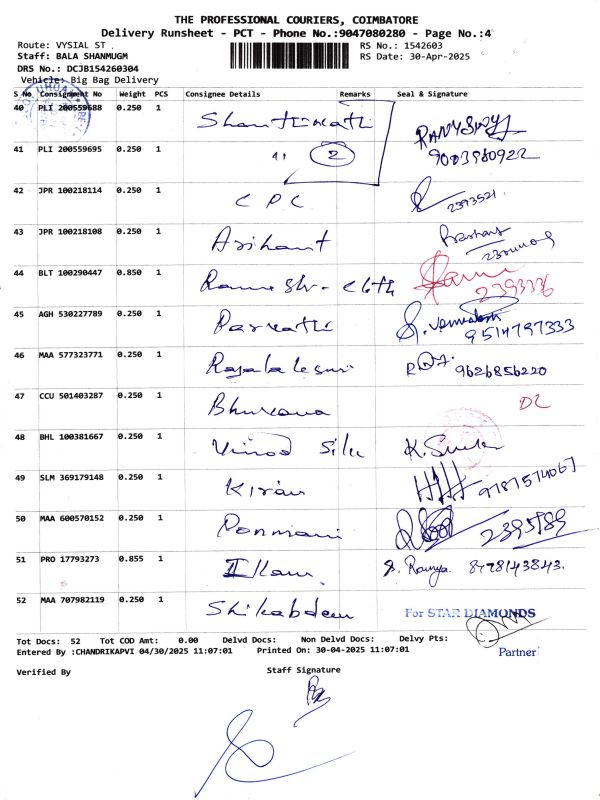 THE PROFESSIONAL COURIERS, COIMBATORE
Delivery Runsheet - PCT - Phone No.:9047080280 - Page No.:4
Route: VYSIAL ST . RS No.: 1542603
Staff: BALA SHANMUGM RS Date: 30-Apr-2025
DRS No.: DCJB154260304
Vehicle: Big Bag Delivery
S No Consignment No Weight PCS Consignee Details Remarks Seal & Signature
40 PLI 200559688 0.250 1 Shanthinath RAMYSHRY
41 PLI 200559695 0.250 1 " 2 9003980922
42 JPR 100218114 0.250 1 CPC 2393521
43 JPR 100218108 0.250 1 Arihant
44 BLT 100290447 0.850 1 Ramesh - Cloth 2393336
45 AGH 530227789 0.250 1 Parvathi 9514797333
46 MAA 577323771 0.250 1 9626856220
47 CCU 501403287 0.250 1 Bhuvana DL
48 BHL 100381667 0.250 1 Vinod Silk
49 SLM 369179148 0.250 1 Kiran 9787574067
50 MAA 600570152 0.250 1 Ponmani 2395789
51 PRO 17793273 0.855 1 S. Ramya 8778143843.
52 MAA 707982119 0.250 1 For STAR DIAMONDS
Partner
Tot Docs: 52 Tot COD Amt: 0.00 Delvd Docs: Non Delvd Docs: Delvy Pts:
Entered By :CHANDRIKAPVI 04/30/2025 11:07:01 Printed On: 30-04-2025 11:07:01
Verified By Staff Signature